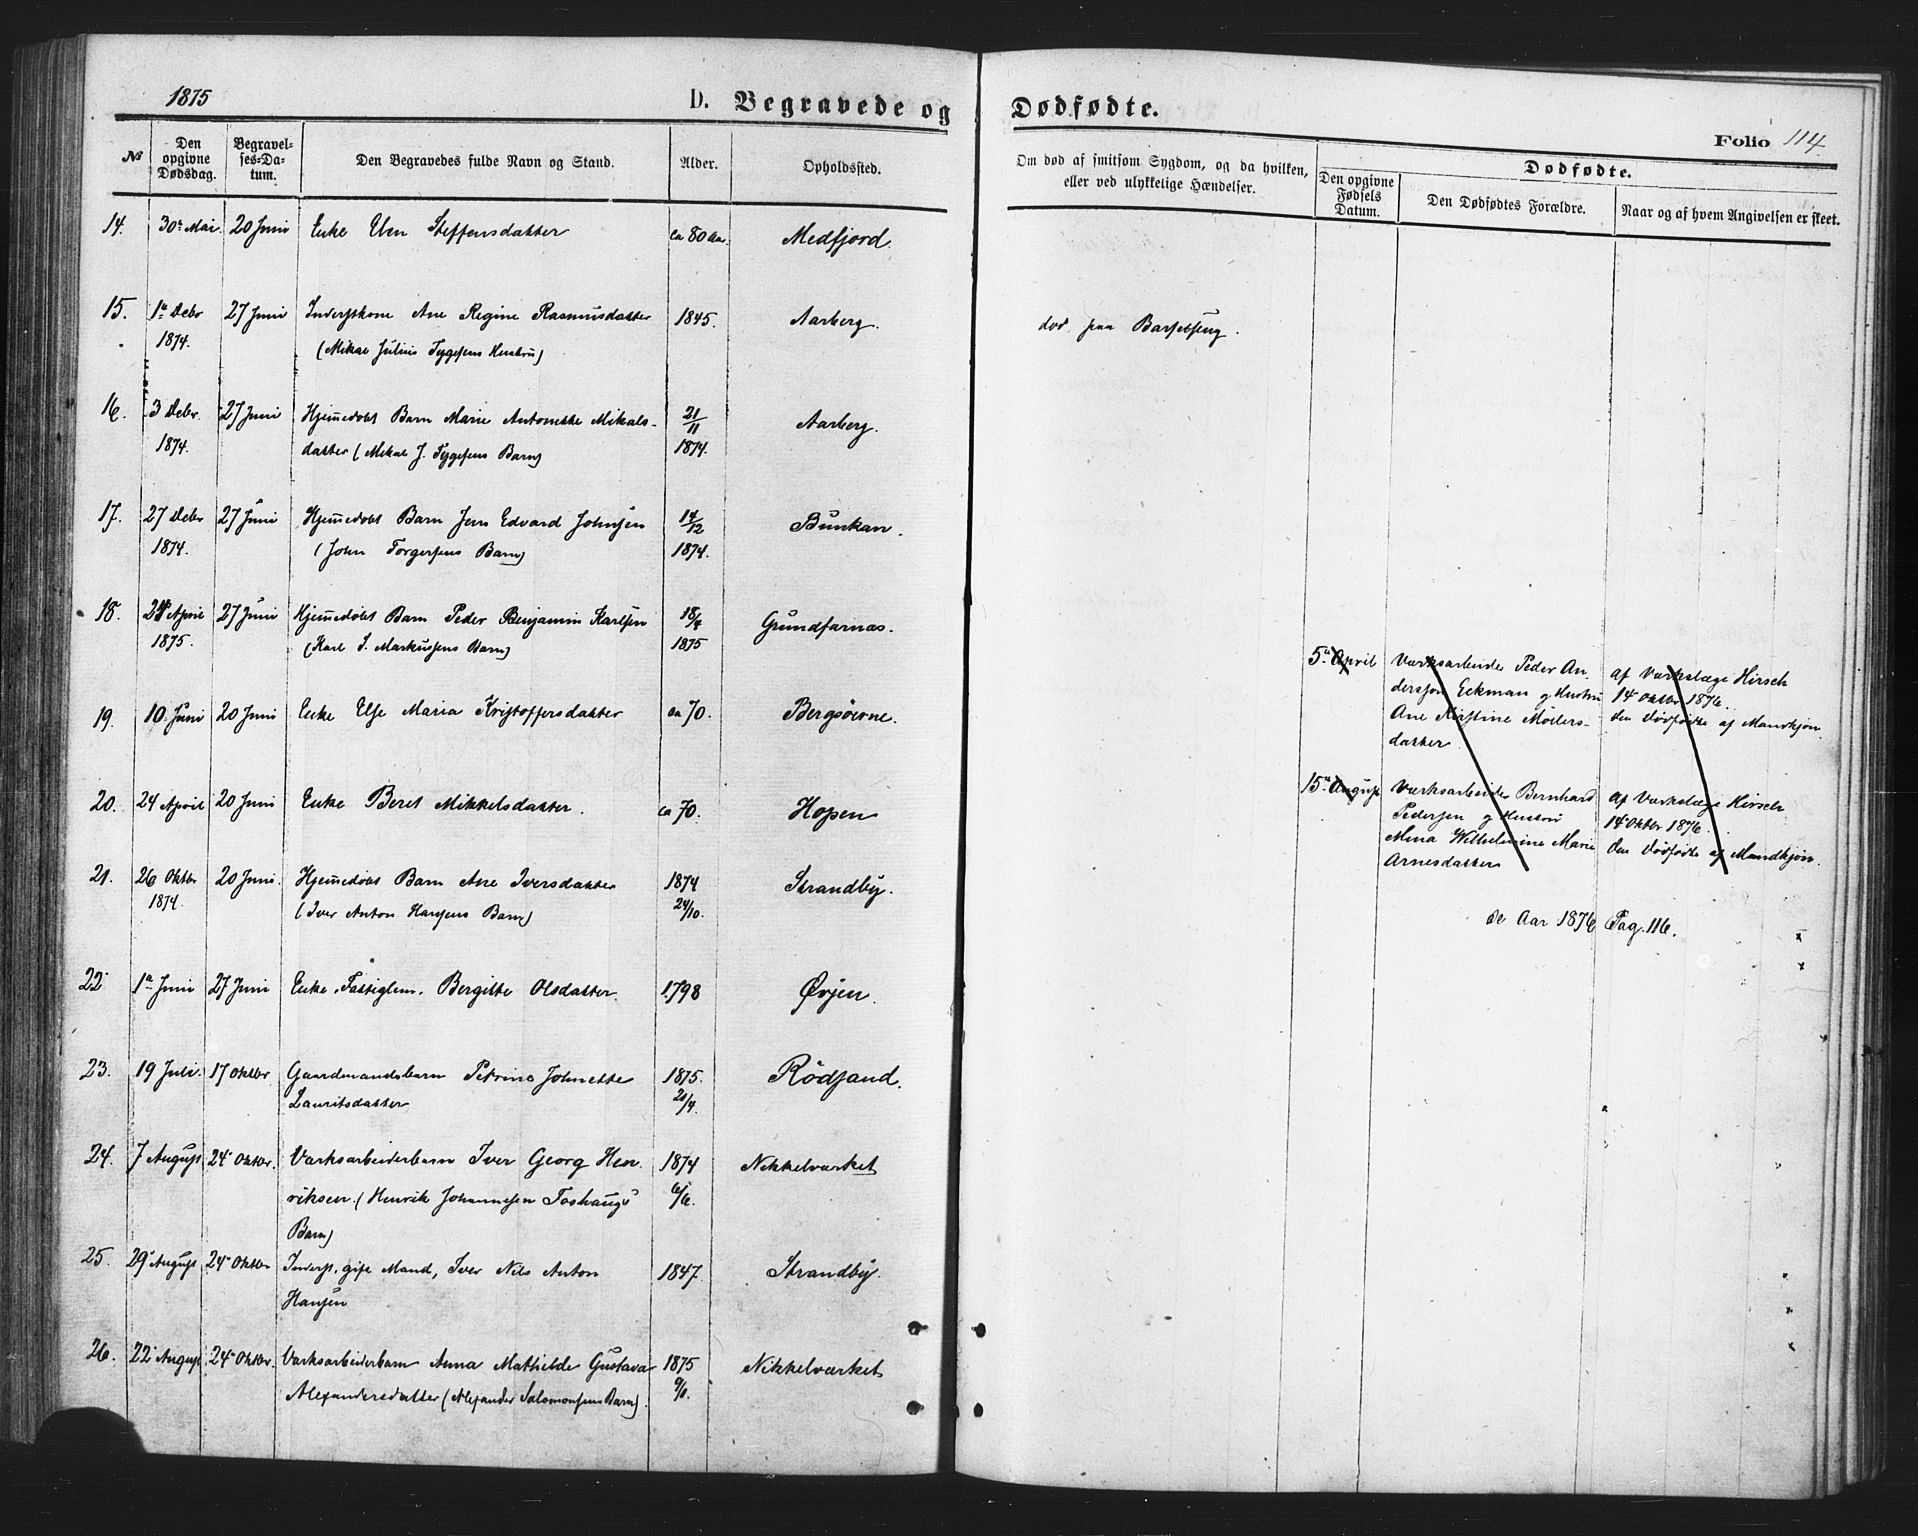 1875
D. Begravede og Dødfødte.
Folio 114.
№
Den opgivne Dødsdag.
Begravelses-Datum.
Den Begravedes fulde Navn og Stand.
Alder.
Opholdssted.
Om død af smitsom Sygdom, og da hvilken,
eller ved ulykkelige Hændelser.
Dødfødte.
Den opgivne Fødsels Datum.
Den Dødfødtes Forældre.
Naar og af hvem Angivelsen er skeet.
14. 30te Mai 20 Juni Enke Elen Steffensdatter ca 80 Aar. Medfjord.
15. 1ste Debr 27 Juni Inderstkone Ane Regine Rasmusdatter 1845. Aarberg. død paa Barselseng.
1874. (Mikal Julius Tygesens Hustru)
16. 3 Debr 27 Juni Hjemmedøbt Barn Marie Antonette Mikals- 21/11 Aarberg.
1874. datter (Mikal J. Tygesens Barn) 1874.
17. 27 Debr 27 Juni Hjemmedøbt Barn Jens Edvard Johnsen 14/12 Bunkan.
1874. (John Torgersens Barn) 1874.
18. 24 April 27 Juni Hjemmedøbt Barn Peder Benjamin Karlsen 18/4 Grundfarnæs.
1875. (Karl J. Markussens Barn) 1875
19. 10 Juni 20 Juni Enke Else Maria Kristoffersdatter ca 70. Bergsøerne.
20. 24 April 20 Juni Enke Beret Mikkelsdatter. ca 70. Hopen
21. 26 Oktbr 20 Juni. Hjemmedøbt Barn Ane Iversdatter 1874 Strandby.
1874. (Iver Anton Hansens Barn) 24/10.
22 1ste Juni 27 Juni Enke, Fattiglem, Bergitte Olsdatter. 1798 Øvjen.
23. 19 Juli. 17 Oktbr Gaardmandsbarn Petrine Johnette 1875. Rödsand.
Lauritsdatter 21/4.
24. 7 August 24 Oktbr. Værksarbeiderbarn Iver Georg Hen- 1874 Nikkelværket
riksen. (Henrik Johannesen Toshaugs 6/6.
Barn)
25. 29 August 24 Oktbr Inderst, gift Mand, Iver Nils Anton 1847. Strandby.
Hansen
26. 22 August 24 Oktbr. Værksarbeiderbarn Anna Mathilde Gustava 1875 Nikkelværket
Alexandersdatter (Alexander Salomonsens Barn). 9/6.
5te April Værksarbeider Peder An- af Værkslæge Hirsch
derssøn Eckman og Hustru 14 Oktbr 1876.
Ane Kirstine Møllers- den Dødfødte af Mandkjøn.
datter.
15de August Værksarbeider Bernhard af Værkslæge Hirsch
Pedersen og Hustru 14 Oktbr 1876.
Mina Wilhelmine Marie den Dødfødte af Mandkjøn.
Arnesdatter
se Aar 1876 Pag. 116.